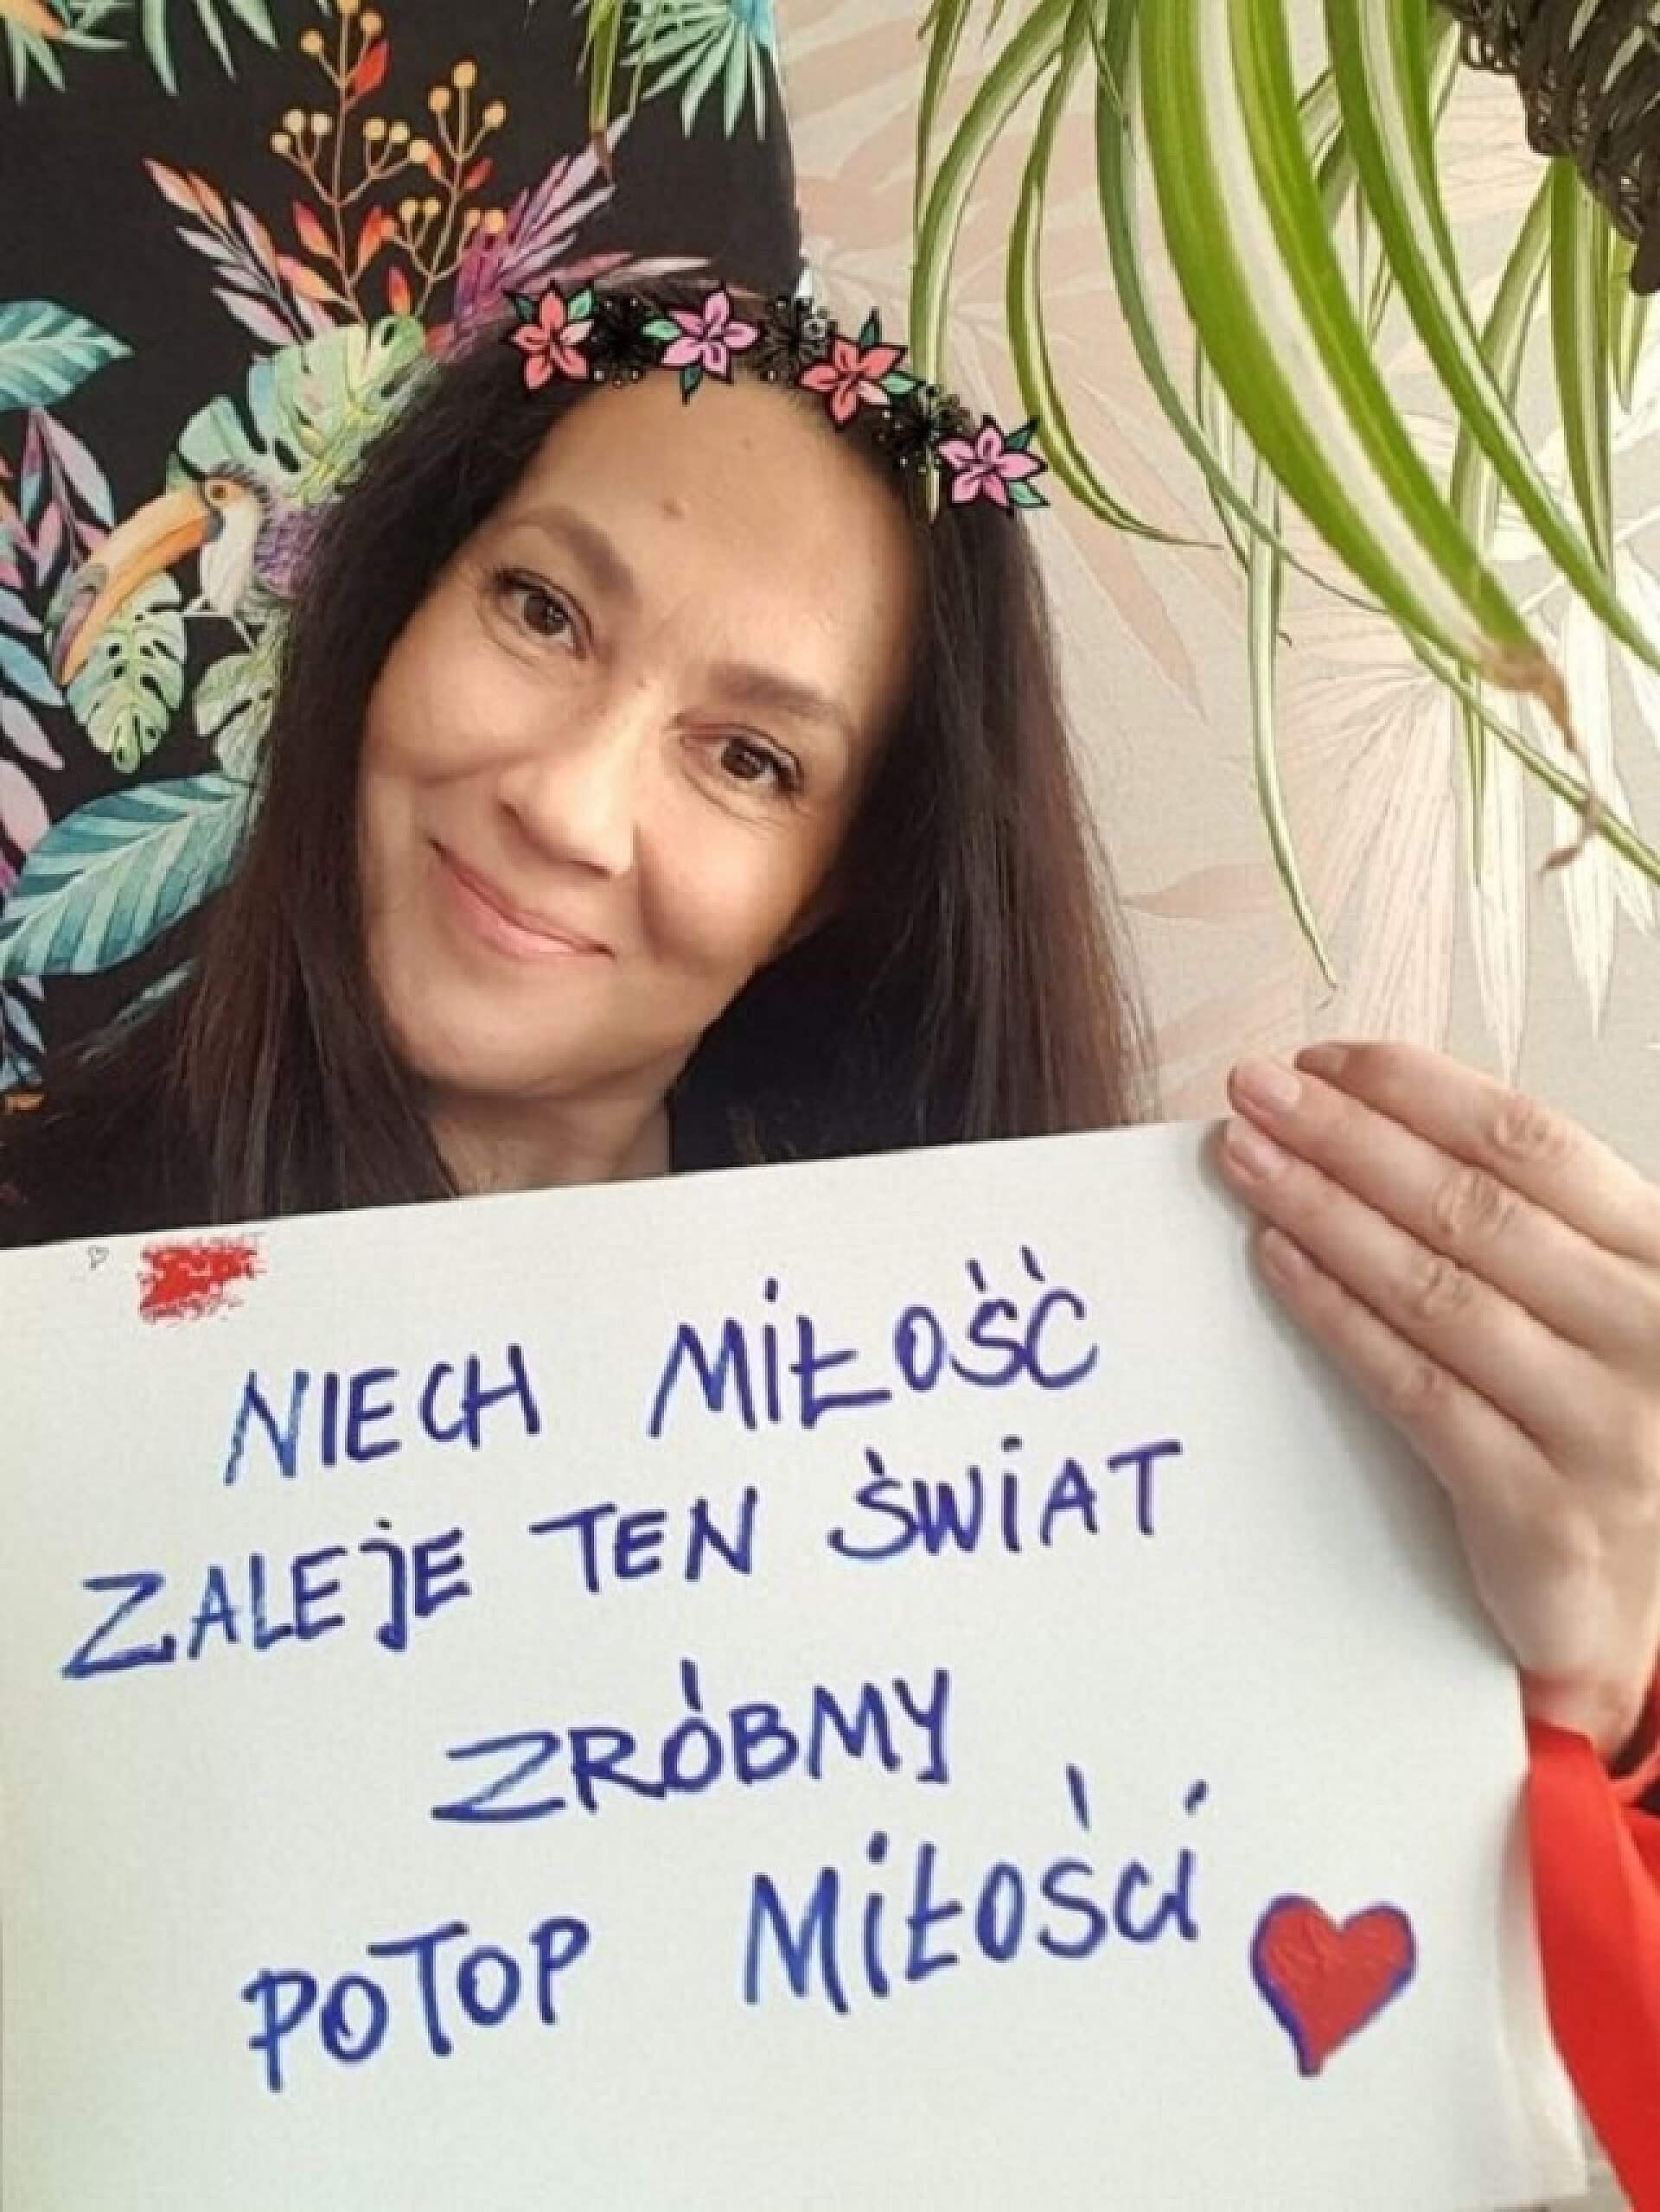 NIECH MIŁOŚĆ
ZALEJE TEN ŚWIAT
ZRÓBMY
POTOP MIŁOŚCI